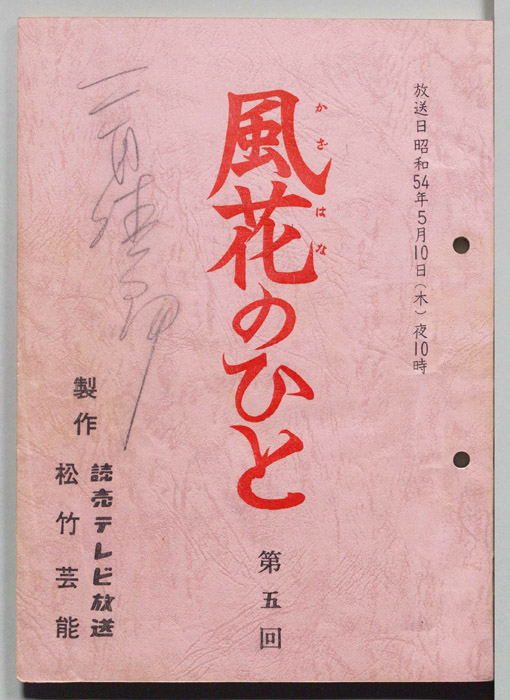 放送日 昭和54年5月10日(木)夜10時
かざはな
風花のひと
第五回
製作
読売テレビ放送
松竹芸能